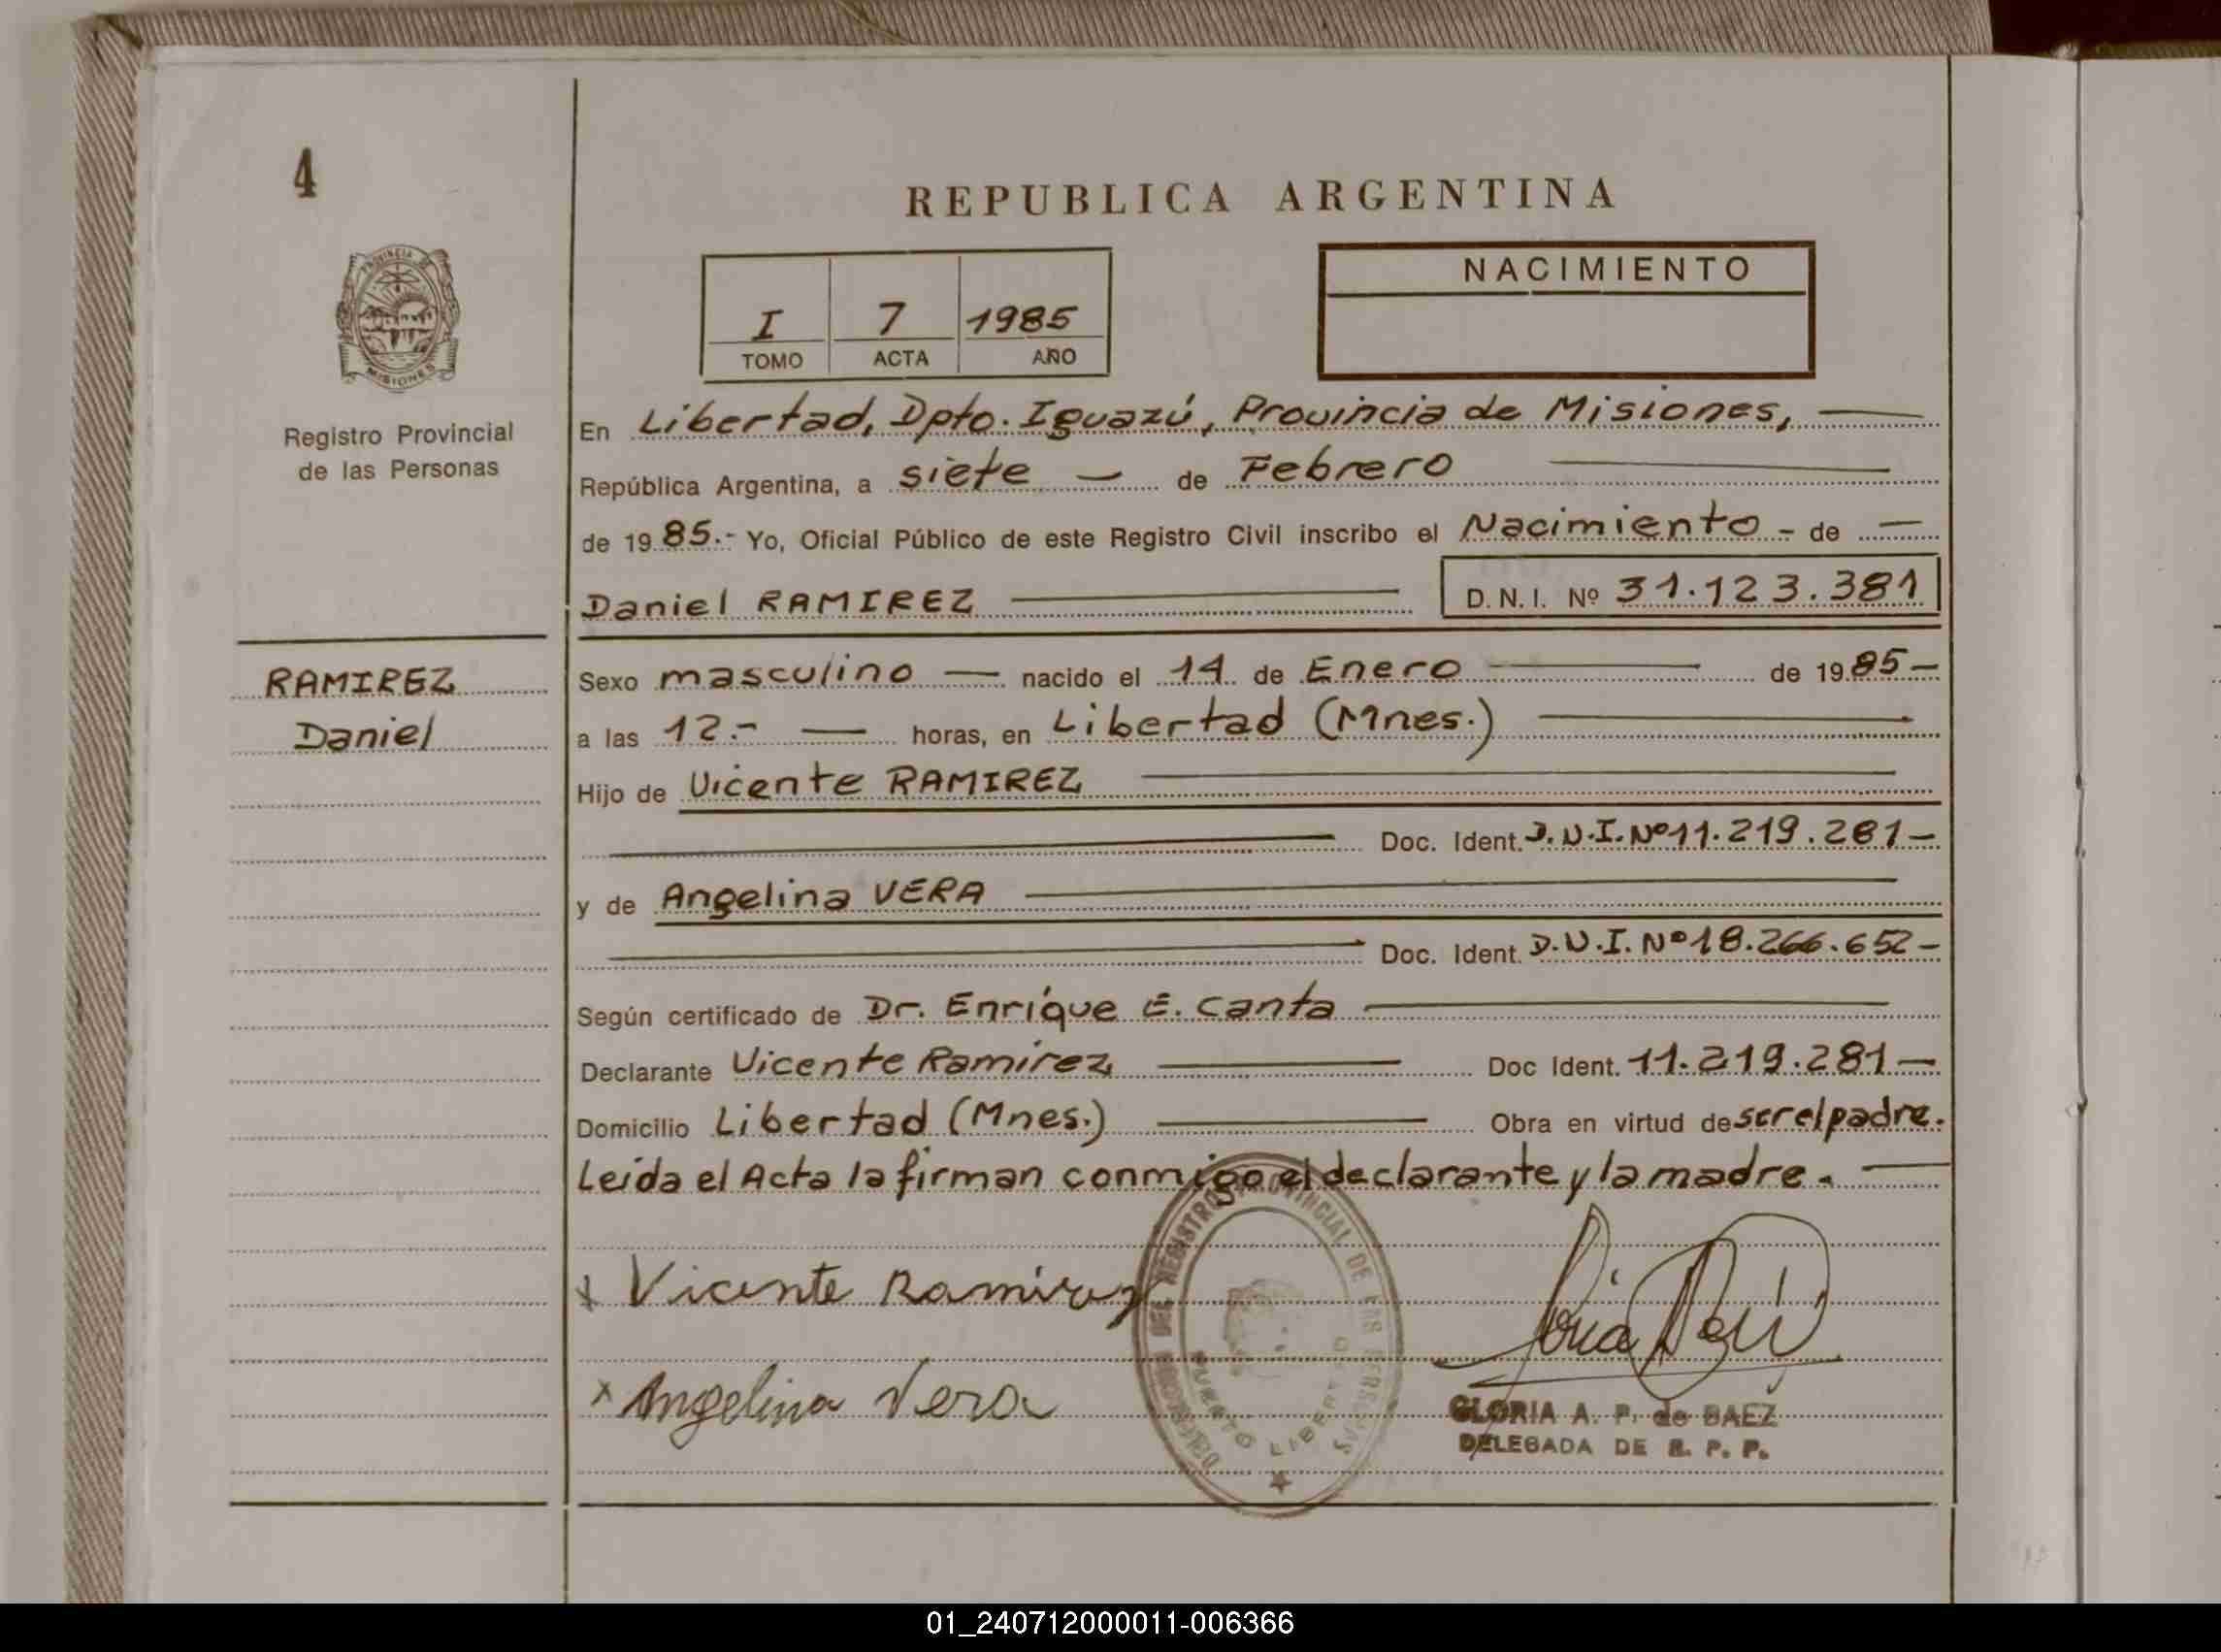 4
REPUBLICA ARGENTINA
PROVINCIA DE
MISIONES
Registro Provincial
de las Personas
I 7 1985
TOMO ACTA AÑO
NACIMIENTO
En Libertad, Dpto. Iguazú, Provincia de Misiones,
República Argentina, a siete de Febrero
de 1985.- Yo, Oficial Público de este Registro Civil inscribo el Nacimiento - de
Daniel RAMIREZ D.N.I. Nº 31.123.381
RAMIREZ
Daniel
Sexo masculino nacido el 14 de Enero de 1985-
a las 12.- horas, en Libertad (Mnes.)
Hijo de Vicente RAMIREZ
Doc. Ident. D.N.I. Nº 11.219.281-
y de Angelina VERA
Doc. Ident. D.N.I. Nº 18.266.652-
Según certificado de Dr. Enrique E. Canta
Declarante Vicente Ramírez Doc Ident. 11.219.281-
Domicilio Libertad (Mnes.) Obra en virtud de ser el padre.
Leída el Acta la firman conmigo el declarante y la madre.
x Vicente Ramirez
x Angelina Vera
DEL REGISTRO PROVINCIAL DE LAS PERSONAS
PUERTO LIBERTAD
GLORIA A. P. de BAEZ
DELEGADA DE R. P. P.
01_240712000011-006366